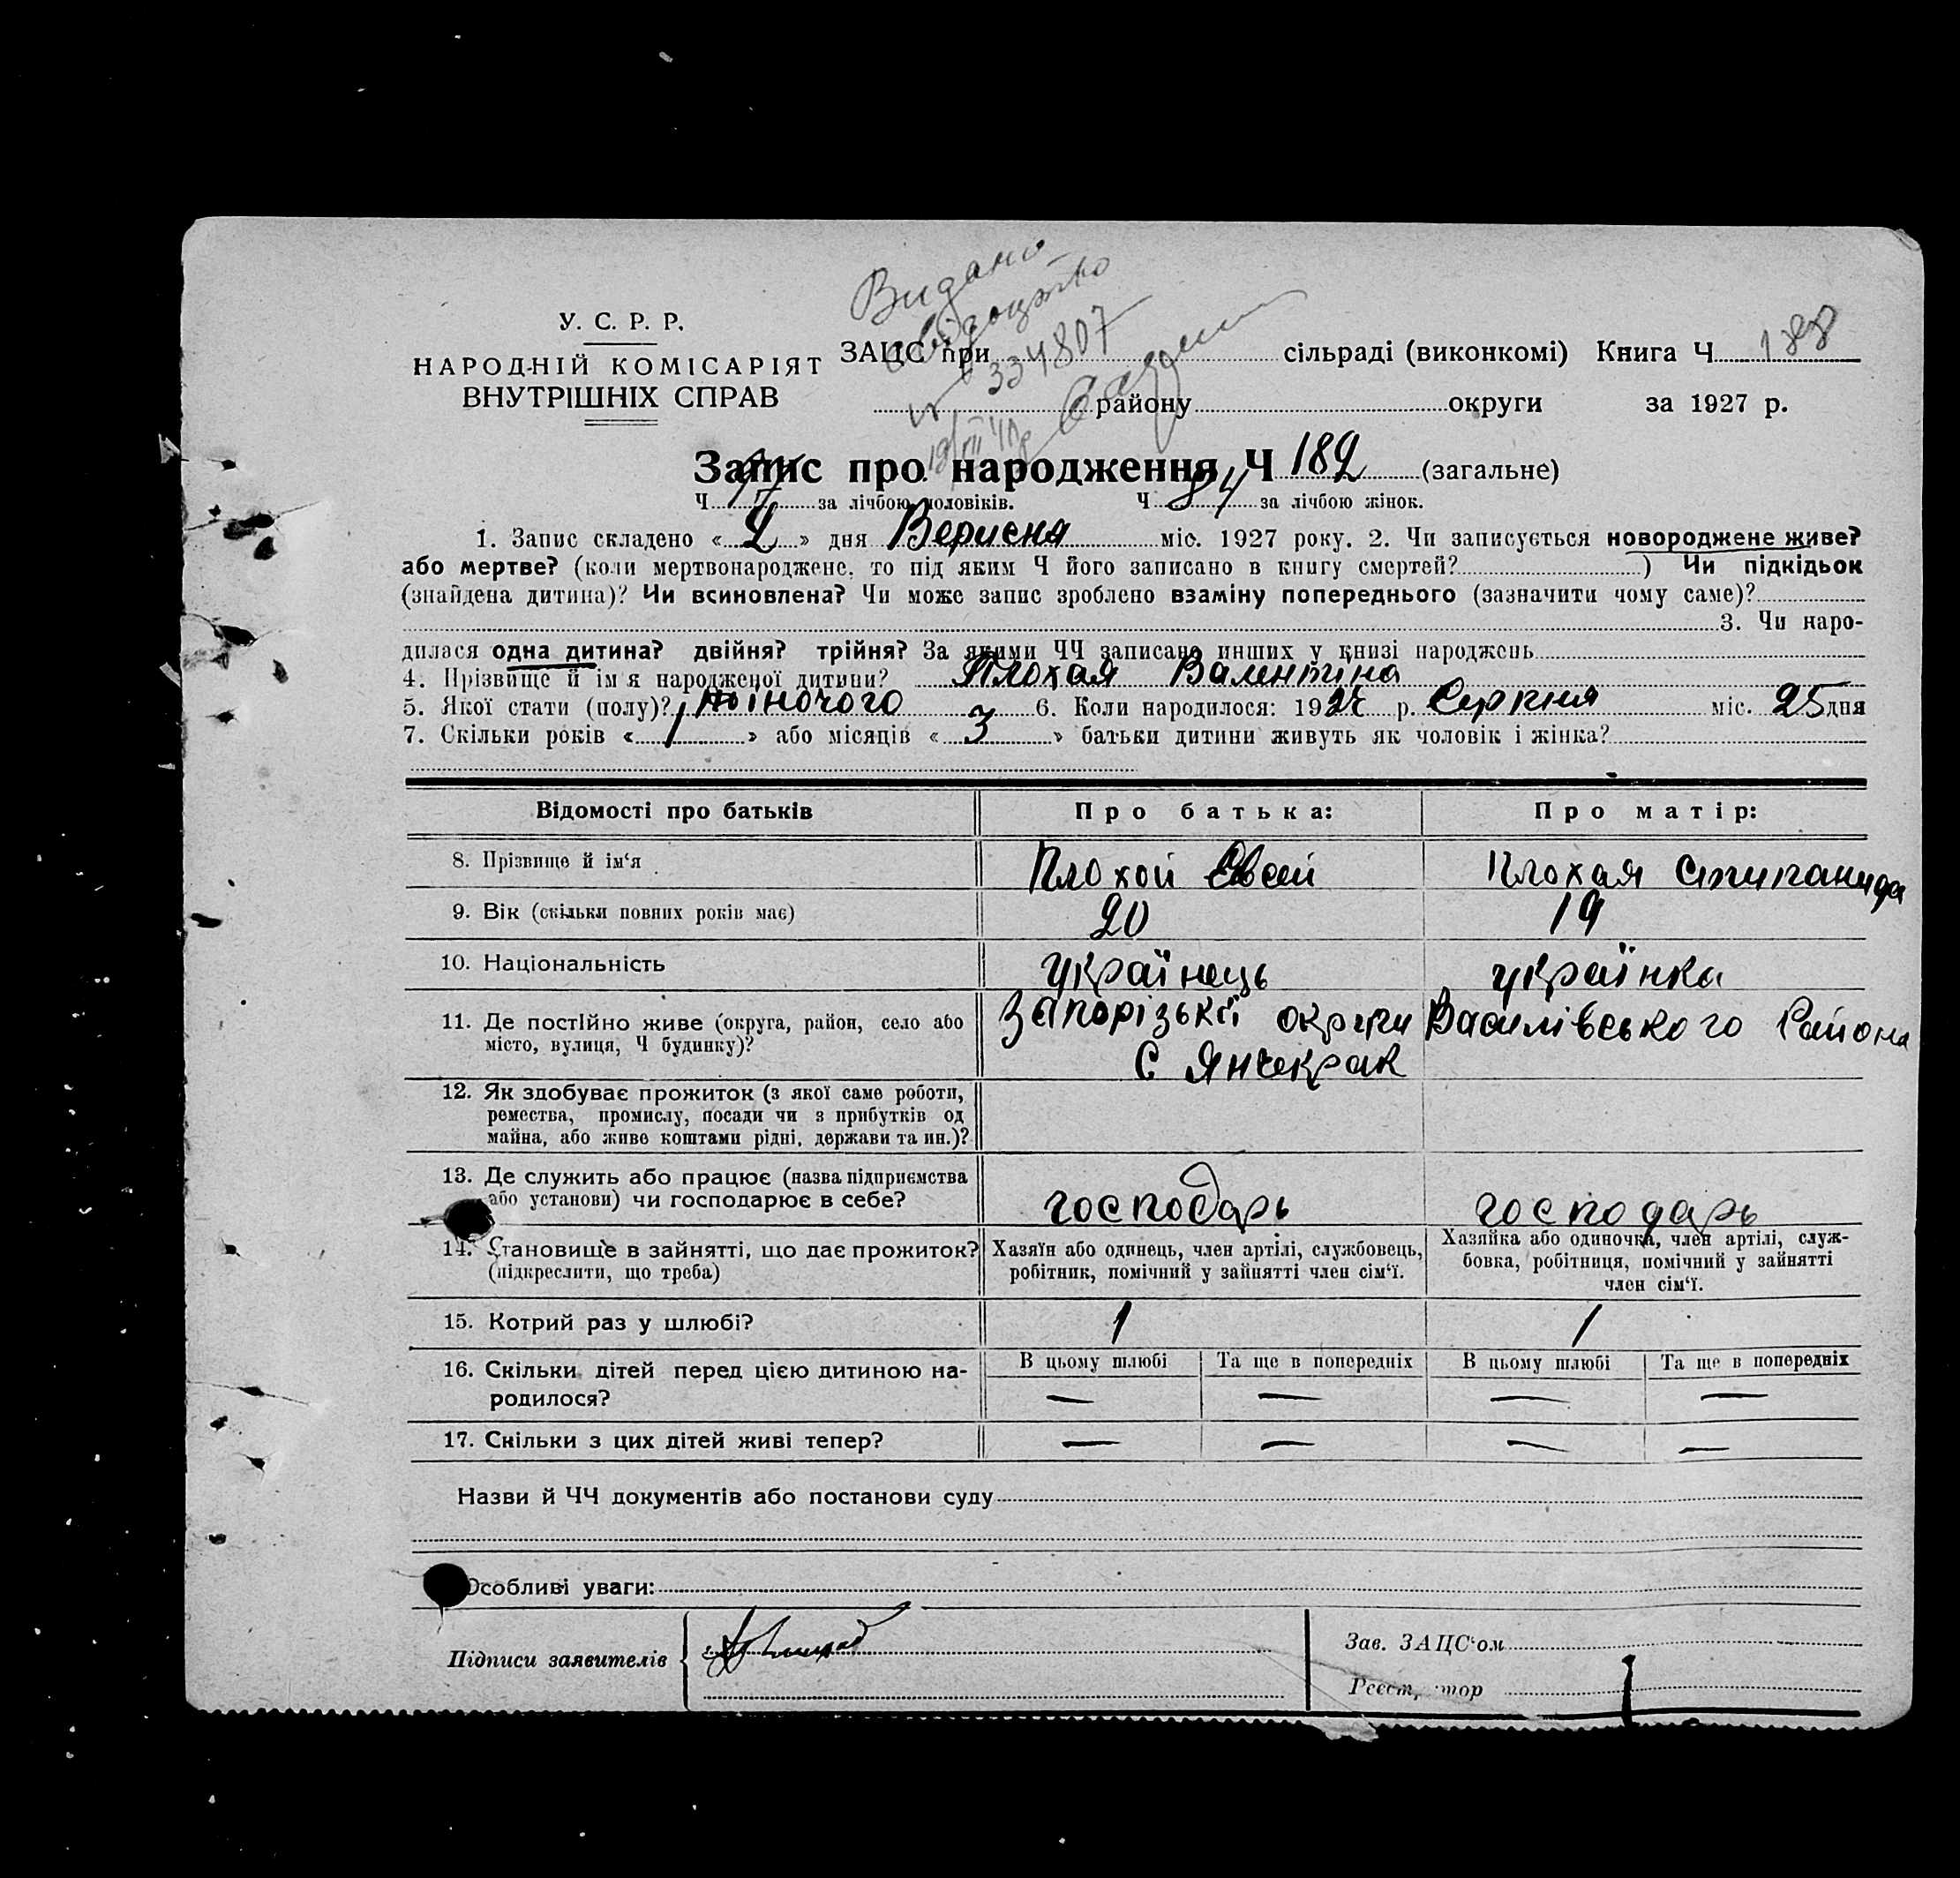 Видано
свідоцтво
№ 334807
У. С. Р. Р.
НАРОДНІЙ КОМІСАРІЯТ
ВНУТРІШНІХ СПРАВ
ЗАЦС при сільраді (виконкомі) Книга Ч
району округи за 1927 р.
Запис про народження Ч 182 (загальне)
Ч за лічбою чоловіків. Ч 84 за лічбою жінок.
1. Запис складено « 2 » дня Вересня міс. 1927 року. 2. Чи записується новороджене живе?
або мертве? (коли мертвонароджене, то під яким Ч його записано в книгу смертей? ) Чи підкідьок
(знайдена дитина)? Чи всиновлена? Чи може запис зроблено взаміну попереднього (зазначити чому саме)?
3. Чи наро-
дилася одна дитина? двійня? трійня? За якими ЧЧ записано инших у книзі народжень
4. Прізвище й ім'я народженої дитини? Плохая Валентина
5. Якої стати (полу)? жіночого 6. Коли народилося: 1927 р. Серпня міс. 25 дня
7. Скільки років « 1 » або місяців « 3 » батьки дитини живуть як чоловік і жінка?
Відомості про батьків Про батька: Про матір:
8. Прізвище й ім'я Плохой Евсей Плохая Стипанида
9. Вік (скільки повних років має) 20 19
10. Національність українець українка
11. Де постійно живе (округа, район, село або Запорізької округи Василівського Района
місто, вулиця, Ч будинку)? С Янчекрак
12. Як здобуває прожиток (з якої саме роботи,
ремества, промислу, посади чи з прибутків од
майна, або живе коштами рідні, держави та ин.)?
13. Де служить або працює (назва підприємства
або установи) чи господарює в себе? господарь господарь
14. Становище в зайнятті, що дає прожиток? Хазяїн або одинець, член артілі, службовець, Хазяйка або одиночка, член артілі, служ-
(підкреслити, що треба) робітник, помічний у зайнятті член сім'ї. бовка, робітниця, помічний у зайнятті
член сім'ї.
15. Котрий раз у шлюбі? 1 1
16. Скільки дітей перед цією дитиною на- В цьому шлюбі Та ще в попередніх В цьому шлюбі Та ще в попередніх
родилося? — — — —
17. Скільки з цих дітей живі тепер? — — — —
Назви й ЧЧ документів або постанови суду
Особливі уваги:
Підписи заявителів Зав. ЗАЦС'ом
Реєстратор